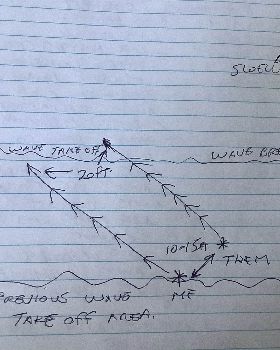 SWELL
WAVE TAKE OFF
WAVE BRE
20ft
10-15ft
THEM
ME
PREVIOUS WAVE
TAKE OFF AREA.